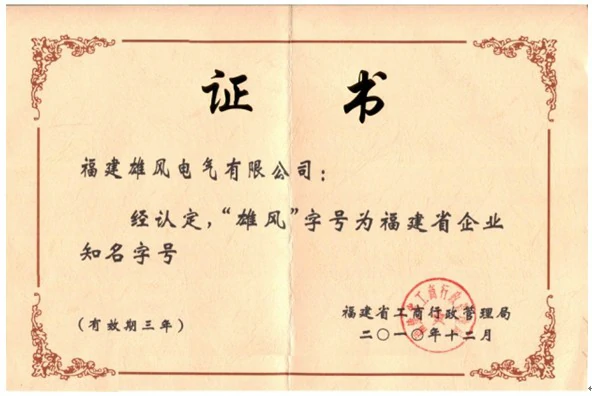 证 书
福建雄风电气有限公司：
经认定，“雄风”字号为福建省企业
知名字号
福建省工商行政管理局
(有效期三年)
二〇一〇年十二月